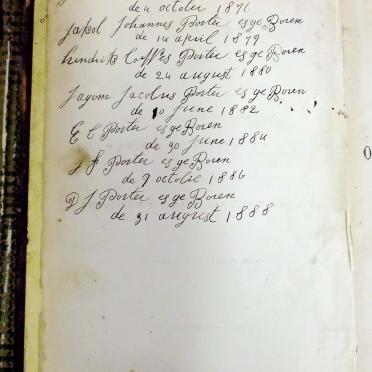 de 4 october 1876
Jakob Johannes Porter es ge Boren
de 14 april 1879
hendrik Porter es ge Boren
de 24 august 1880
Jacobus Porter es ge Boren
de 10 June 1882
E C Porter es ge Boren
de 30 June 1884
Porter es ge Boren
de 9 octobe 1886
D J Porter es ge Boren
de 31 august 1888
O